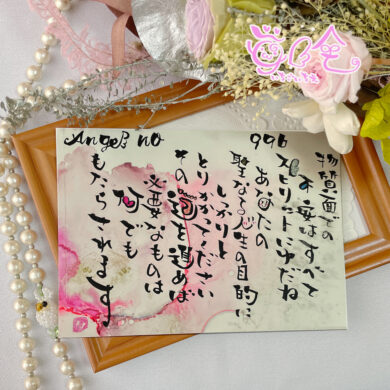 Angel no 996
物質面での
不安はすべて
スピリットにゆだね
あなたの
聖なる人生の目的に
しっかりと
とりかかってください
その道を進めば
必要なものは
何でも
もたらされます